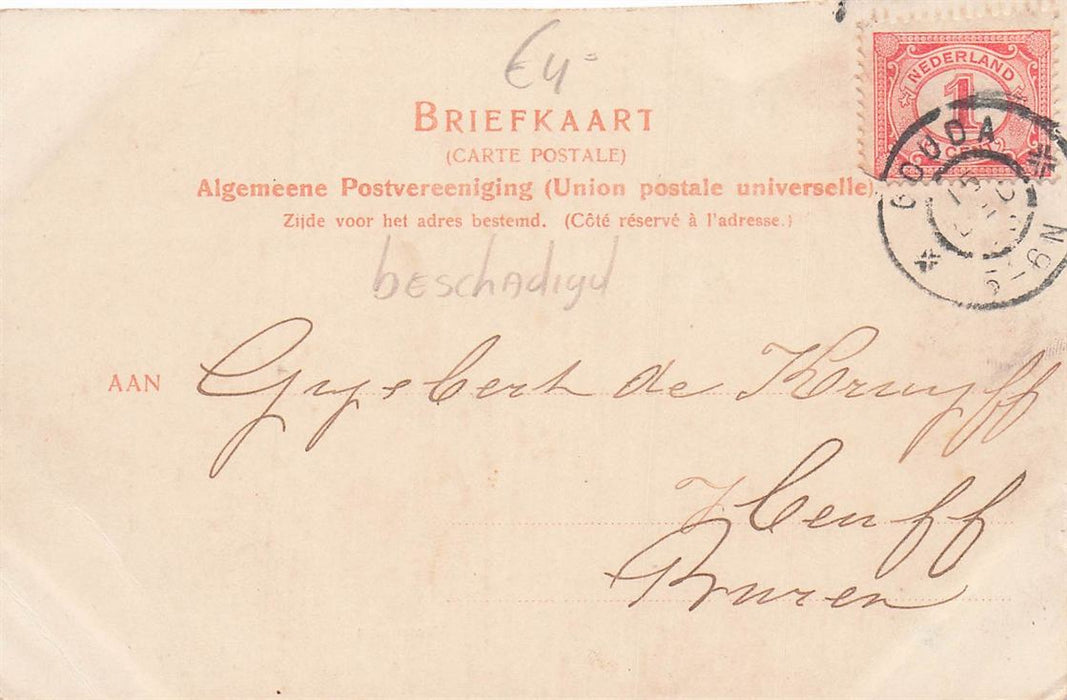 €4,-
NEDERLAND
1
CENT
GOUDA
BRIEFKAART
(CARTE POSTALE)
Algemeene Postvereeniging (Union postale universelle)
Zijde voor het adres bestemd. (Côté réservé à l'adresse.)
beschadigd
AAN Gysbert de Kruyff
Buren